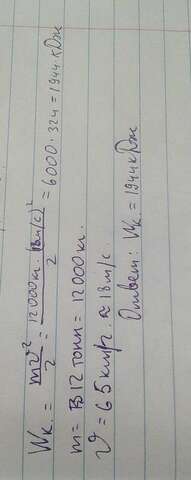 Wк. = mv²/2 = 12000кг. · (18м/с)²/2 = 6000 · 324 = 1944кДж
m = 12 тонн = 12000кг.
v = 65км/г. ≈ 18м/с.
Ответ: Wк = 1944кДж